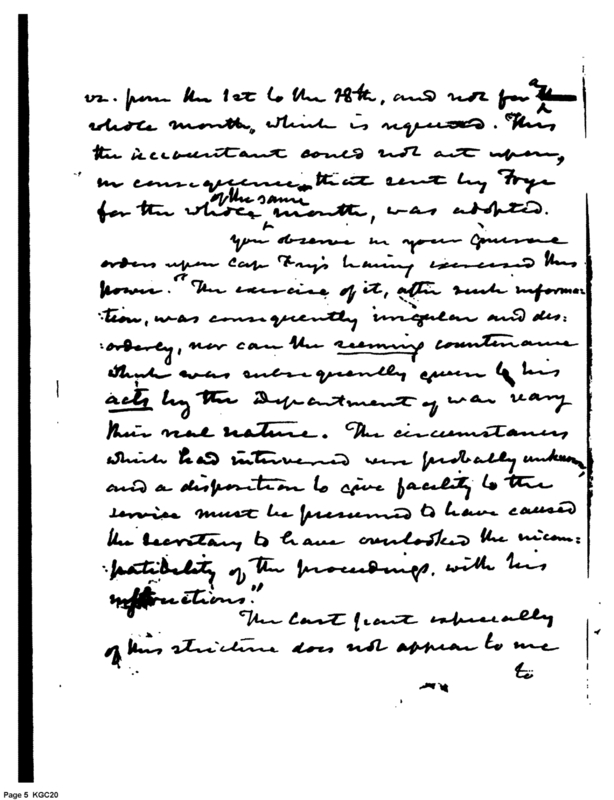 vz. from the 1st to the 28th, and not for a
whole month, which is requested. This
the accountant could not act upon,
in consequence that sent by Frye
of the same
for the whole month, was adopted.
You observe in your General
orders upon Cap Fry's having exercised this
power. "The exercise of it, after such informa:
:tion, was consequently irregular and dis:
:orderly, nor can the seeming countenance
which was subsequently given to his
acts by the Department of war vary
their real nature. The circumstances
which had intervened were probably unknown,
and a disposition to give facility to the
service must be presumed to have caused
the Secretary to have overlooked the incom:
:patibility of the proceedings, with his
instructions."
The last part especially
of this stricture does not appear to me
to
Page 5 KGC20